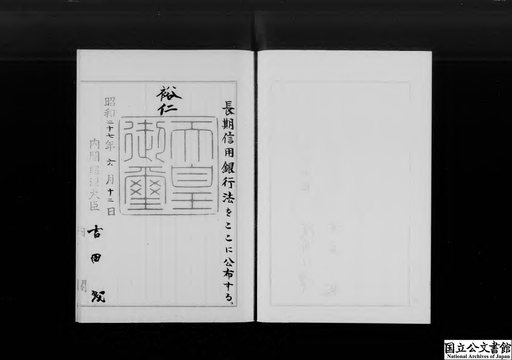 長期信用銀行法をここに公布する。
裕仁
天皇御璽
昭和二十七年六月十二日
内閣総理大臣 吉田茂
国立公文書館
National Archives of Japan